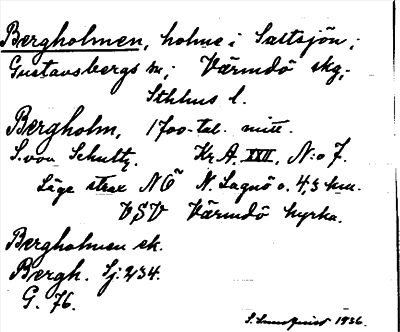 Bergholmen, holme i Saltsjön,
Gustavsbergs sn; Värmdö skg;
Sthlms l.
Bergholm, 1700-tal. mitt.
S. von Schultz. Kr.A. XXII, N:o 7.
Läge strax NÖ N. Lagnö o. 4,3 km.
VSV Värmdö kyrka.
Bergholmen ek.
Bergh. Sj. 234.
G. 76.
1936.